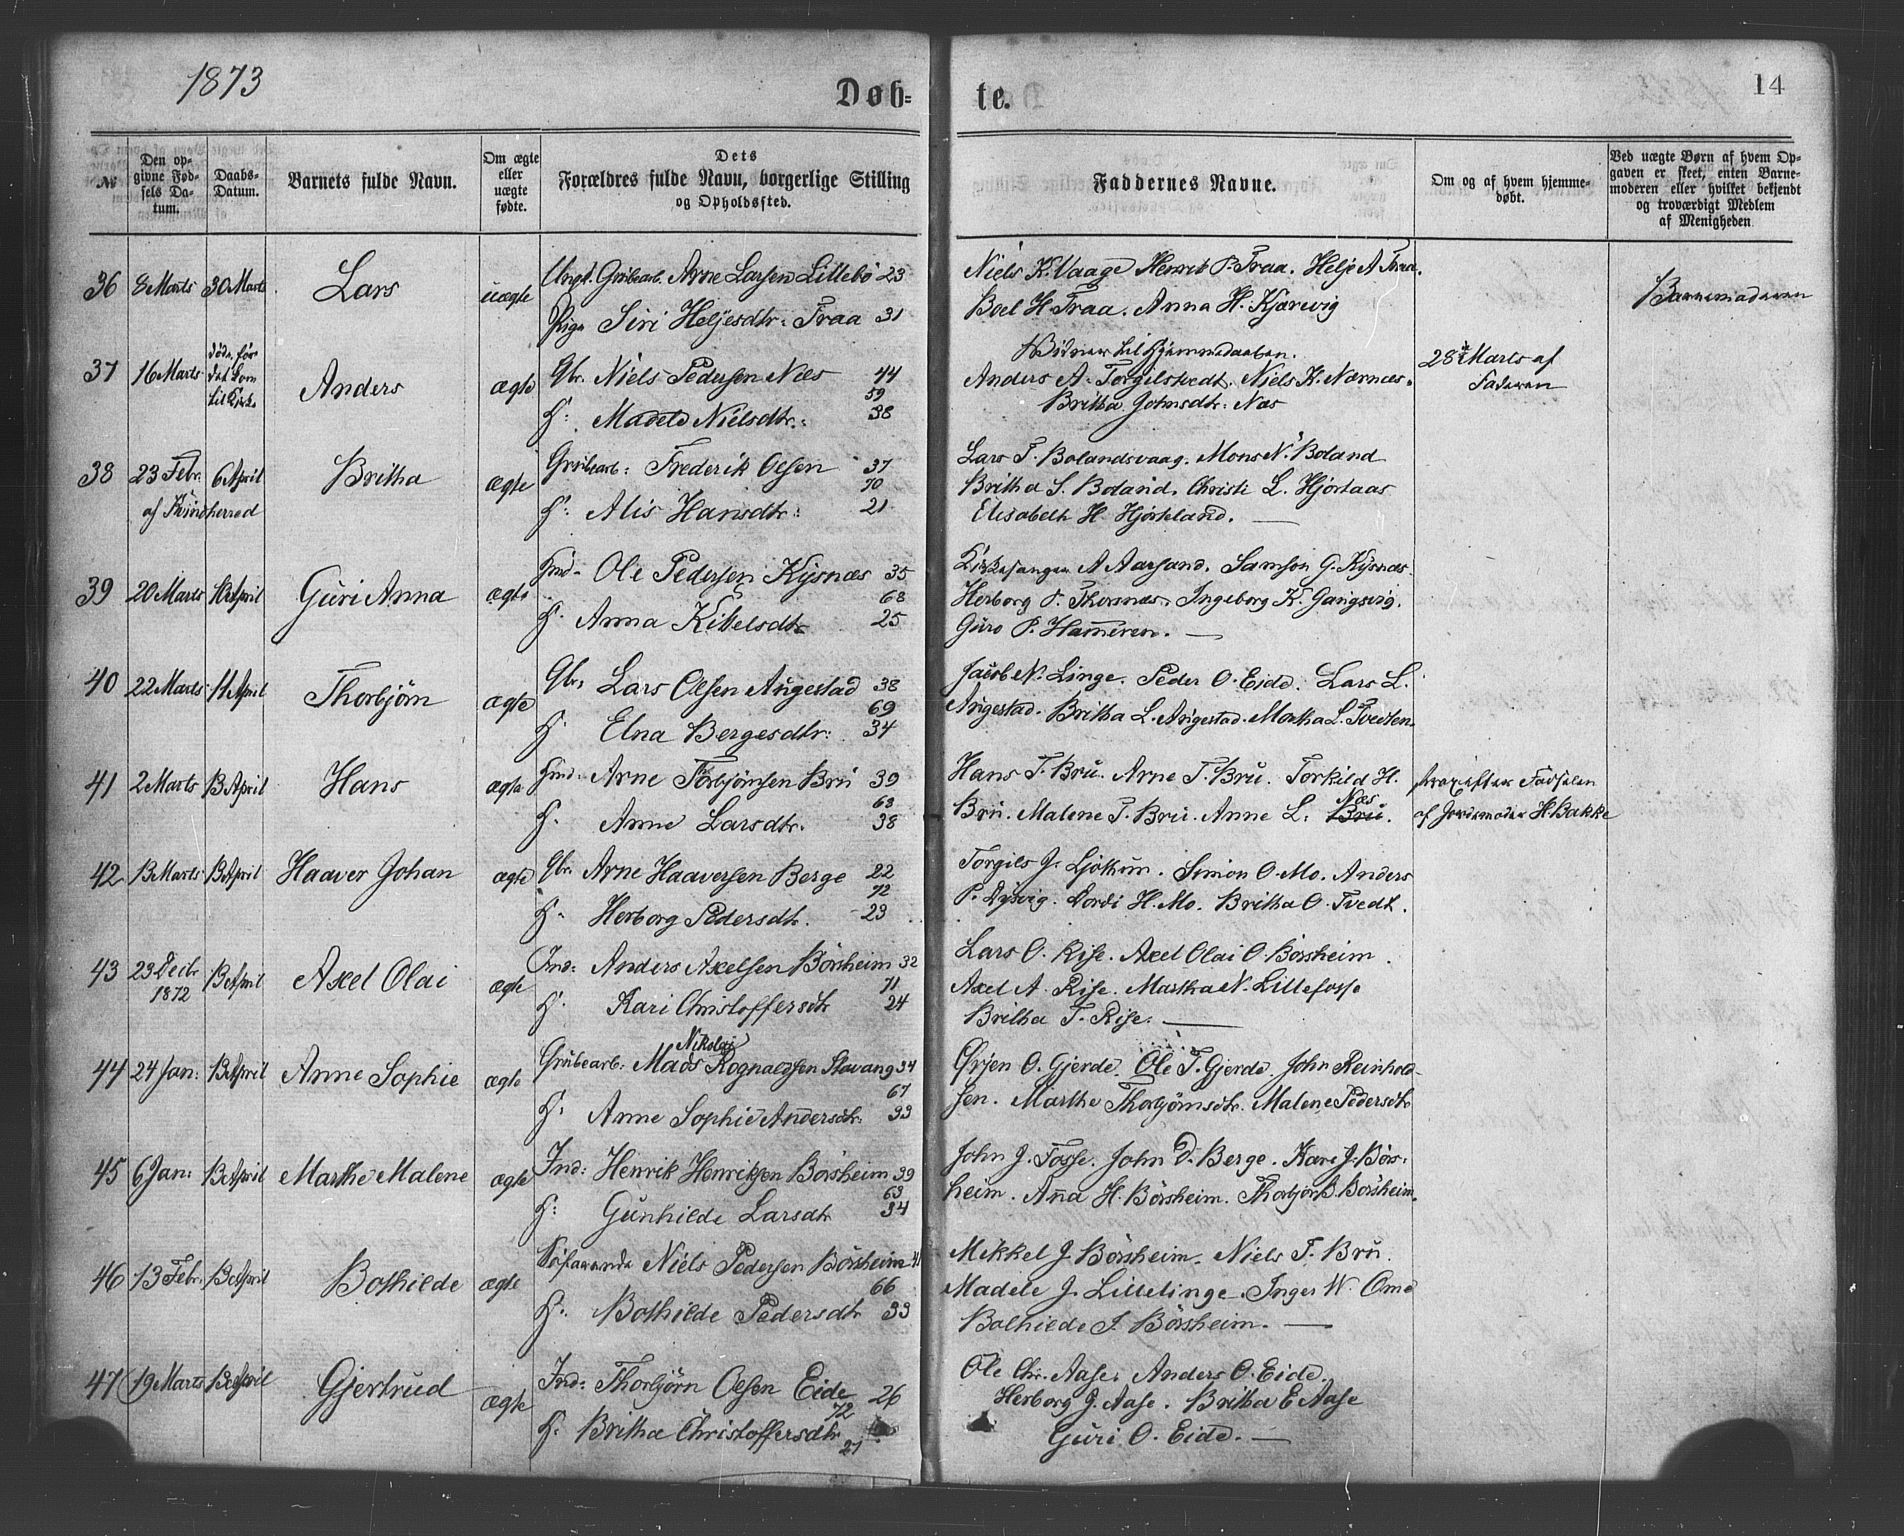 1873
Døb= te.
14
№
Den op-
givne Fød-
sels Da-
tum.
Daabs-
Datum.
Barnets fulde Navn.
Om ægte
eller
uægte
fødte.
Dets
Forældres fulde Navn, borgerlige Stilling
og Opholdssted.
Faddernes Navne.
Om og af hvem hjemme-
døbt.
Ved uægte Børn af hvem Op-
gaven er skeet, enten Barne-
moderen eller hvilket bekjendt
og troværdigt Medlem
af Menigheden
36 8 Marts 30 Marts Lars uægte Ungk. Grubearb. Arne Larsen Lillebö 23
Pige Siri Heljesdtr: Fraa 31
Niels K. Vaage Henrik P. Fraa. Helje A Fraa.
Boel H Fraa. Anna H. Kjærevig
Barnemoderen
37 16 Marts døde før det kom til Kirke Anders ægte Gbr. Niels Pedersen Næs 44
59
H: Madele Nielsdtr: 38
Vidner til Hjemmedaaben.
Anders A. Torgilstvedt. Niels K. Nærnæs.
Britha Johnsdtr: Næs
28de Marts af
Faderen
38 23 Febr. 6 April Britha ægte Grubearb: Frederik Olsen 37
70
af Kvindherred H: Alis Hansdtr: 21
Lars T. Bolandsvaag. Mons N. Boland
Britha S. Boland. Christi L. Hjortaas
Elisabeth H. Hjorteland. —
39 20 Marts 10 April Guri Anna ægte Ind- Ole Pedersen Kysnæs 35
68
H. Anna Kittelsdtr 25
Kirkesanger A Aarsand. Samson G. Kysnæs.
Herborg P. Thorsnæs. Ingeborg K. Gangsvig.
Guro P. Hammeren. —
40 22 Marts 11 April Thorbjörn ægte Gbr. Lars Olsen Augestad 38
69
H. Elna Bergesdtr: 34
Jacob N. Linge. Peder O. Eide. Lars L.
Augestad. Britha L. Augestad. Martha L. Tvedten.
41 2 Marts 13 April Hans ægte Ind: Arne Torbjönsen Bru 39
63
H. Anne Larsdtr. 38
Hans T. Bru. Arne T. Bru. Torkild H.
Bru. Malene T. Bru. Anne L. Næs Bru.
strax efter Fødselen
af Jordemoder H Bakke
42 13 Marts 13 April Haaver Johan ægte Gbr. Arne Haaversen Berge 22
72
H. Herborg Pedersdtr. 23
Torgils J. Ljothun. Simon O. Mo. Anders
P. Dysvig. Dordi H. Mo. Britha O. Tvedt.
43 23 Decbr 1872 13 April Axel Olai ægte Ind: Anders Axelsen Börsheim 32
71
H. Kari Christoffersdtr 24
Lars O. Rise. Axel Olai O. Börsheim.
Axel A. Rise. Martha N. Lillefosse
Britha T. Rise. —
44 24 Jan: 13 April Anne Sophie ægte Grubearb. Mads Nikolai Rognaldsen Stavang 34
67
H. Anne Sophie Andersdtr. 33
Örjen O. Gjerde. Ole T. Gjerde. John Reinhold-
sen. Marthe Thorbjörnsdtr. Malene Pedersdtr
45 6 Jan: 13 April Marthe Malene ægte Ind: Henrik Henriksen Börsheim 39
63
H: Gunhilde Larsdtr 34
John J. Fosse. John D. Berge. Kari J. Börs-
heim. Anna H. Börsheim. Thorbjör B. Börsheim.
46 13 Febr. 13 April Bothilde ægte Niels Pedersen Börsheim 41
66
H. Bothilde Pedersdtr 33
Mikkel J. Börsheim. Niels T. Bru.
Madele J. Lillelinge. Inger W. Ome
Bothilde J. Börsheim. —
47 19 Marts 13 April Gjertrud ægte Ind: Thorbjörn Olsen Eide 26
72
H. Britha Christoffersdtr 21
Ole Chr. Aase. Anders O. Eide.
Herborg J. Aase. Britha E Aase
Guri O. Eide. —